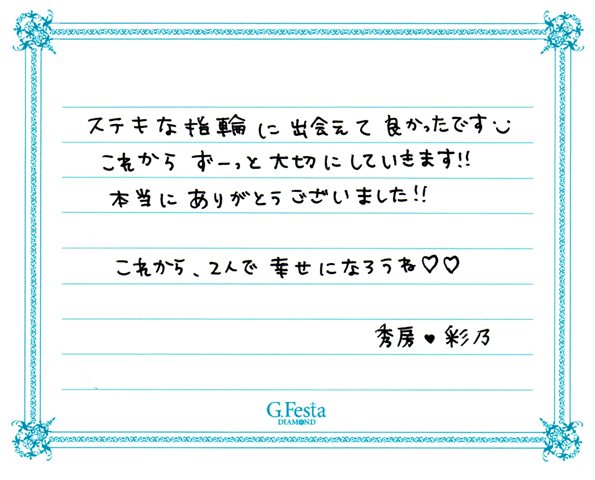 ステキな指輪に出会えて良かったです
これからずーっと大切にしていきます!!
本当にありがとうございました!!
これから、2人で幸せになろうね♡♡
秀房♥彩乃
G.Festa
DIAMOND